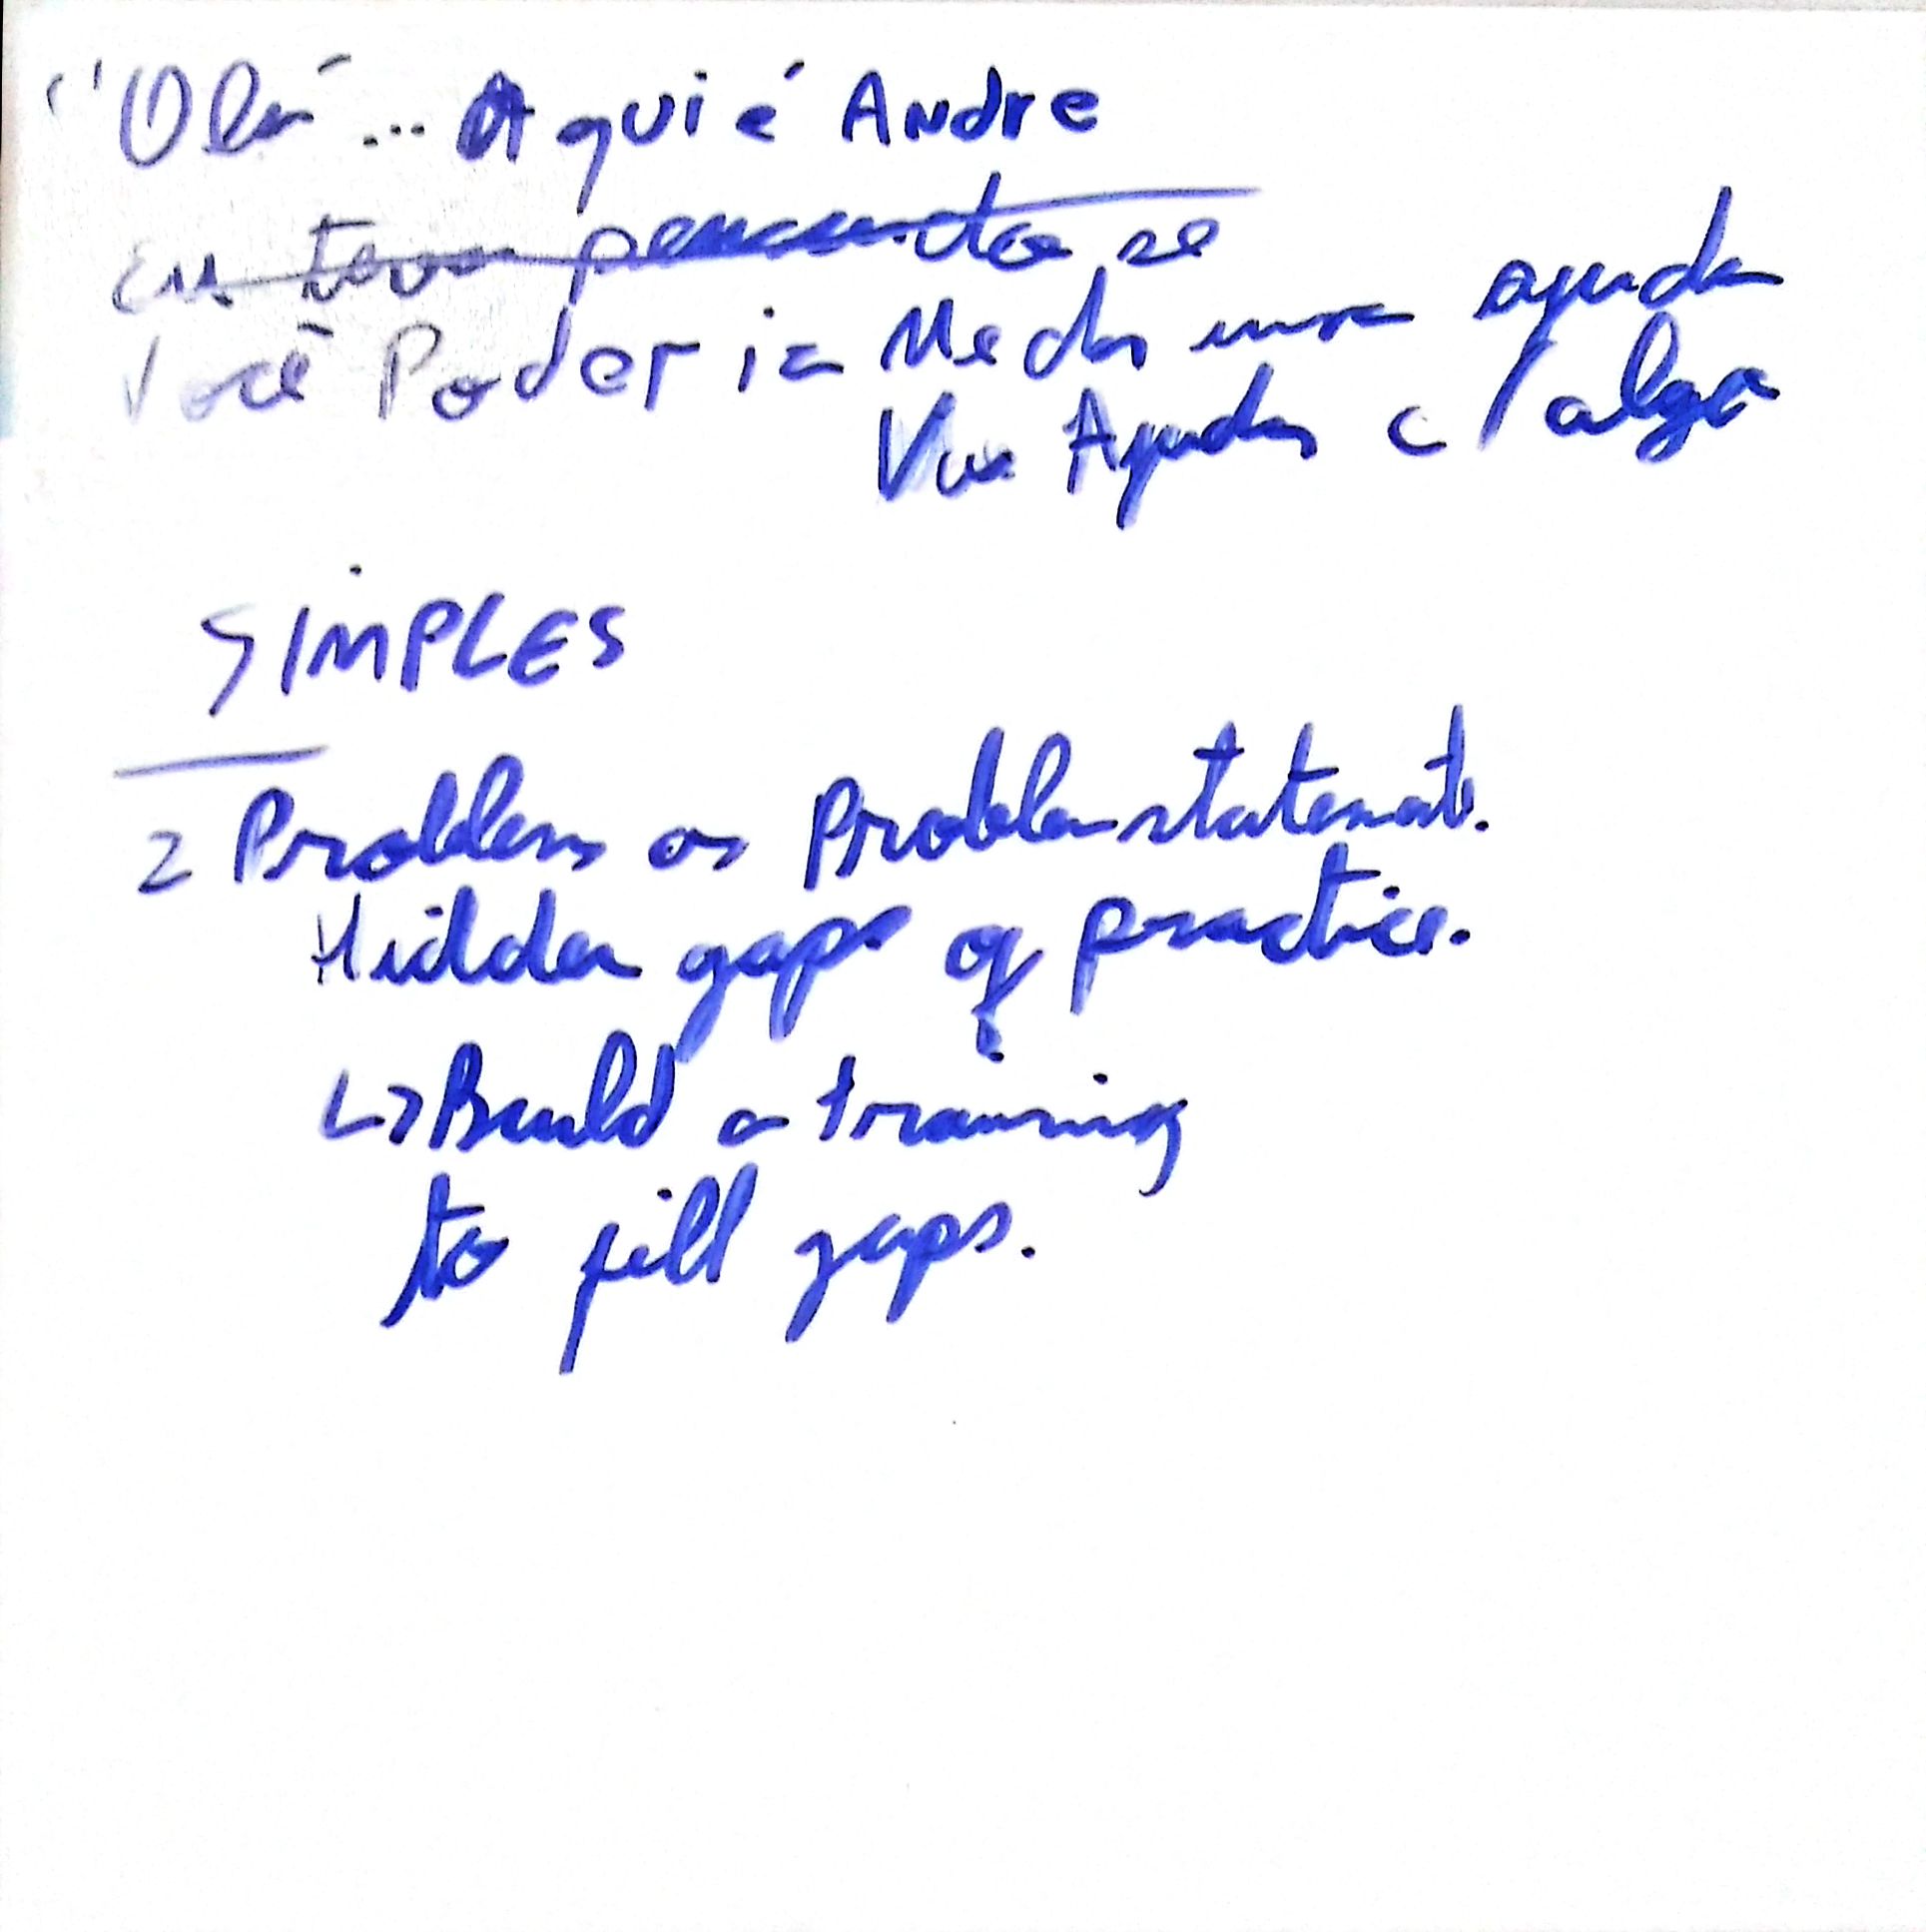 "Olá ... Aqui é Andre
Eu tava pensando se
Você Poderia Me dar uma ajuda
Me Ajudar c/ algo
SIMPLES
2 Problem as Problem statement.
Hidden gaps of practice.
↳ Build a training
to fill gaps.